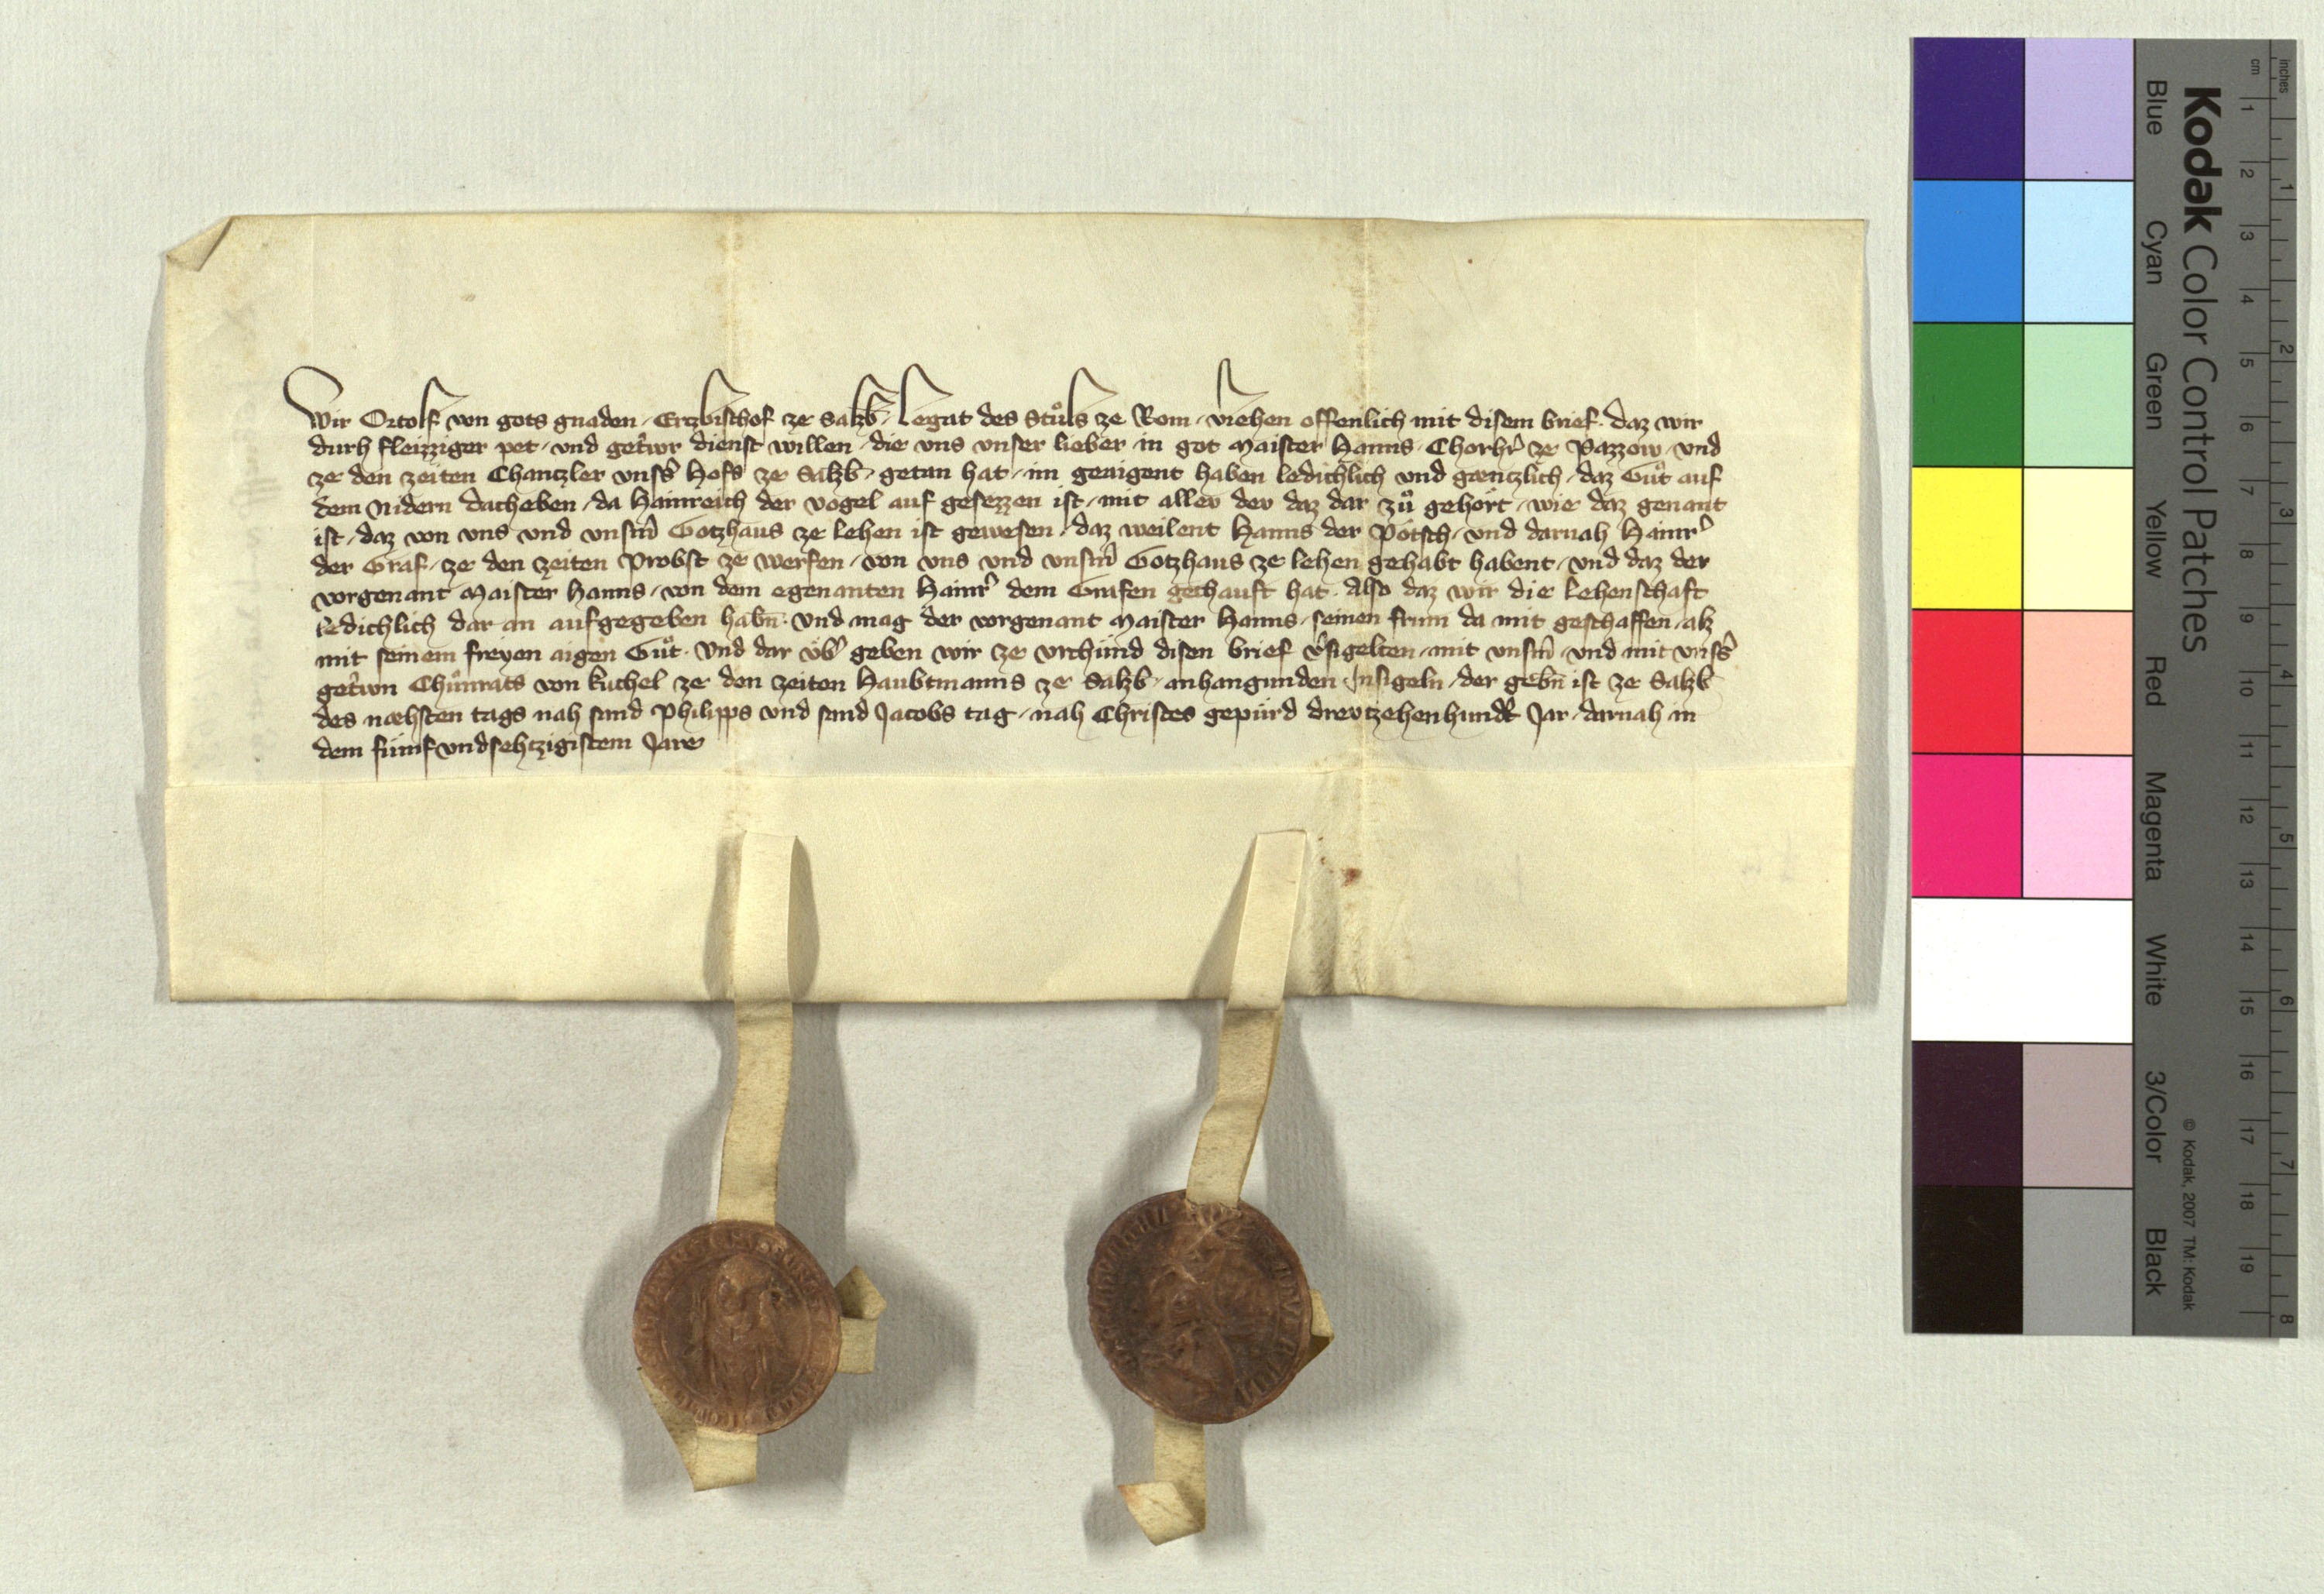 Wir Ortolf von gots gnaden / Ertzbischof ze Saltzb / Legat des Stůls ze Rom / v̾iehen offenlich mit disem brief / daz wir
durh fleizziger pet / vnd get̾wr dienst willen / die vns vnser lieber in got Maister Hanns / Chorhr̾ ze Pazzow / vnd
ze den zeiten Chantzler vnss̾ Hofs ze Saltzb / getan hat / im geaigent haben ledichlich vnd gæntzlich / daz Gůt auf
dem Nidern dacheben / da Hainreich der Vogel auf gesezzen ist / mit aller der daz dar zů gehört / wie daz genant
ist / daz von vns vnd vnsm̾ Gotzhaus ze lehen ist gewesen / daz weilent Hanns der Pötsch / vnd darnah Hainr̾
der Graf / ze den zeiten Probst ze Werfen / von vns vnd vnsm̾ Gotzhaus ze lehen gehabt habent / vnd daz der
vorgenant Maister Hanns / von dem egenanten Hainr̾ dem Grafen gechauft hat. Also daz wir die Lehenschaft
ledichlich dar an aufgegeben habn̄. Vnd mag der vorgenant Maister Hanns / seinen frum da mit geschaffen / alz
mit seinem freyen aigen Gůt. Vnd dar vb̾ geben wir ze vrchünd disen brief v̾sigelten / mit vnsm̾ / vnd mit vnss̾
get̾wn Chůnrats von kuchel ze den zeiten Haubtmanns ze Saltzb / anhangunden Insigeln / der gebn̄ ist ze Saltzb
des næhsten tags nah sand Philipps vnd sand Jacobs tag / nah Christes gepürd drewtzehenhund̾t Jar / darnah in
dem fünfvndsehtzigistem Jare
Kodak Color Control Patches
Blue Cyan Green Yellow Red Magenta White 3/Color Black
© Kodak, 2007 TM: Kodak
inches 1 2 3 4 5 6 7 8
cm 1 2 3 4 5 6 7 8 9 10 11 12 13 14 15 16 17 18 19